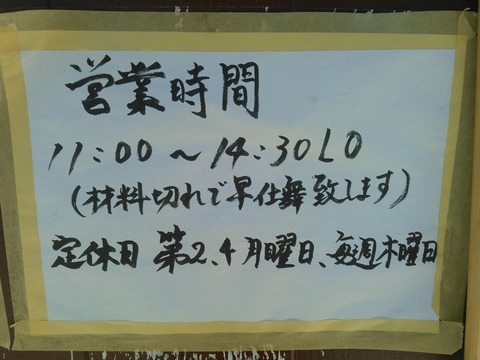 営業時間
11:00～14:30LO
(材料切れで早仕舞致します)
定休日 第2、4月曜日、毎週木曜日